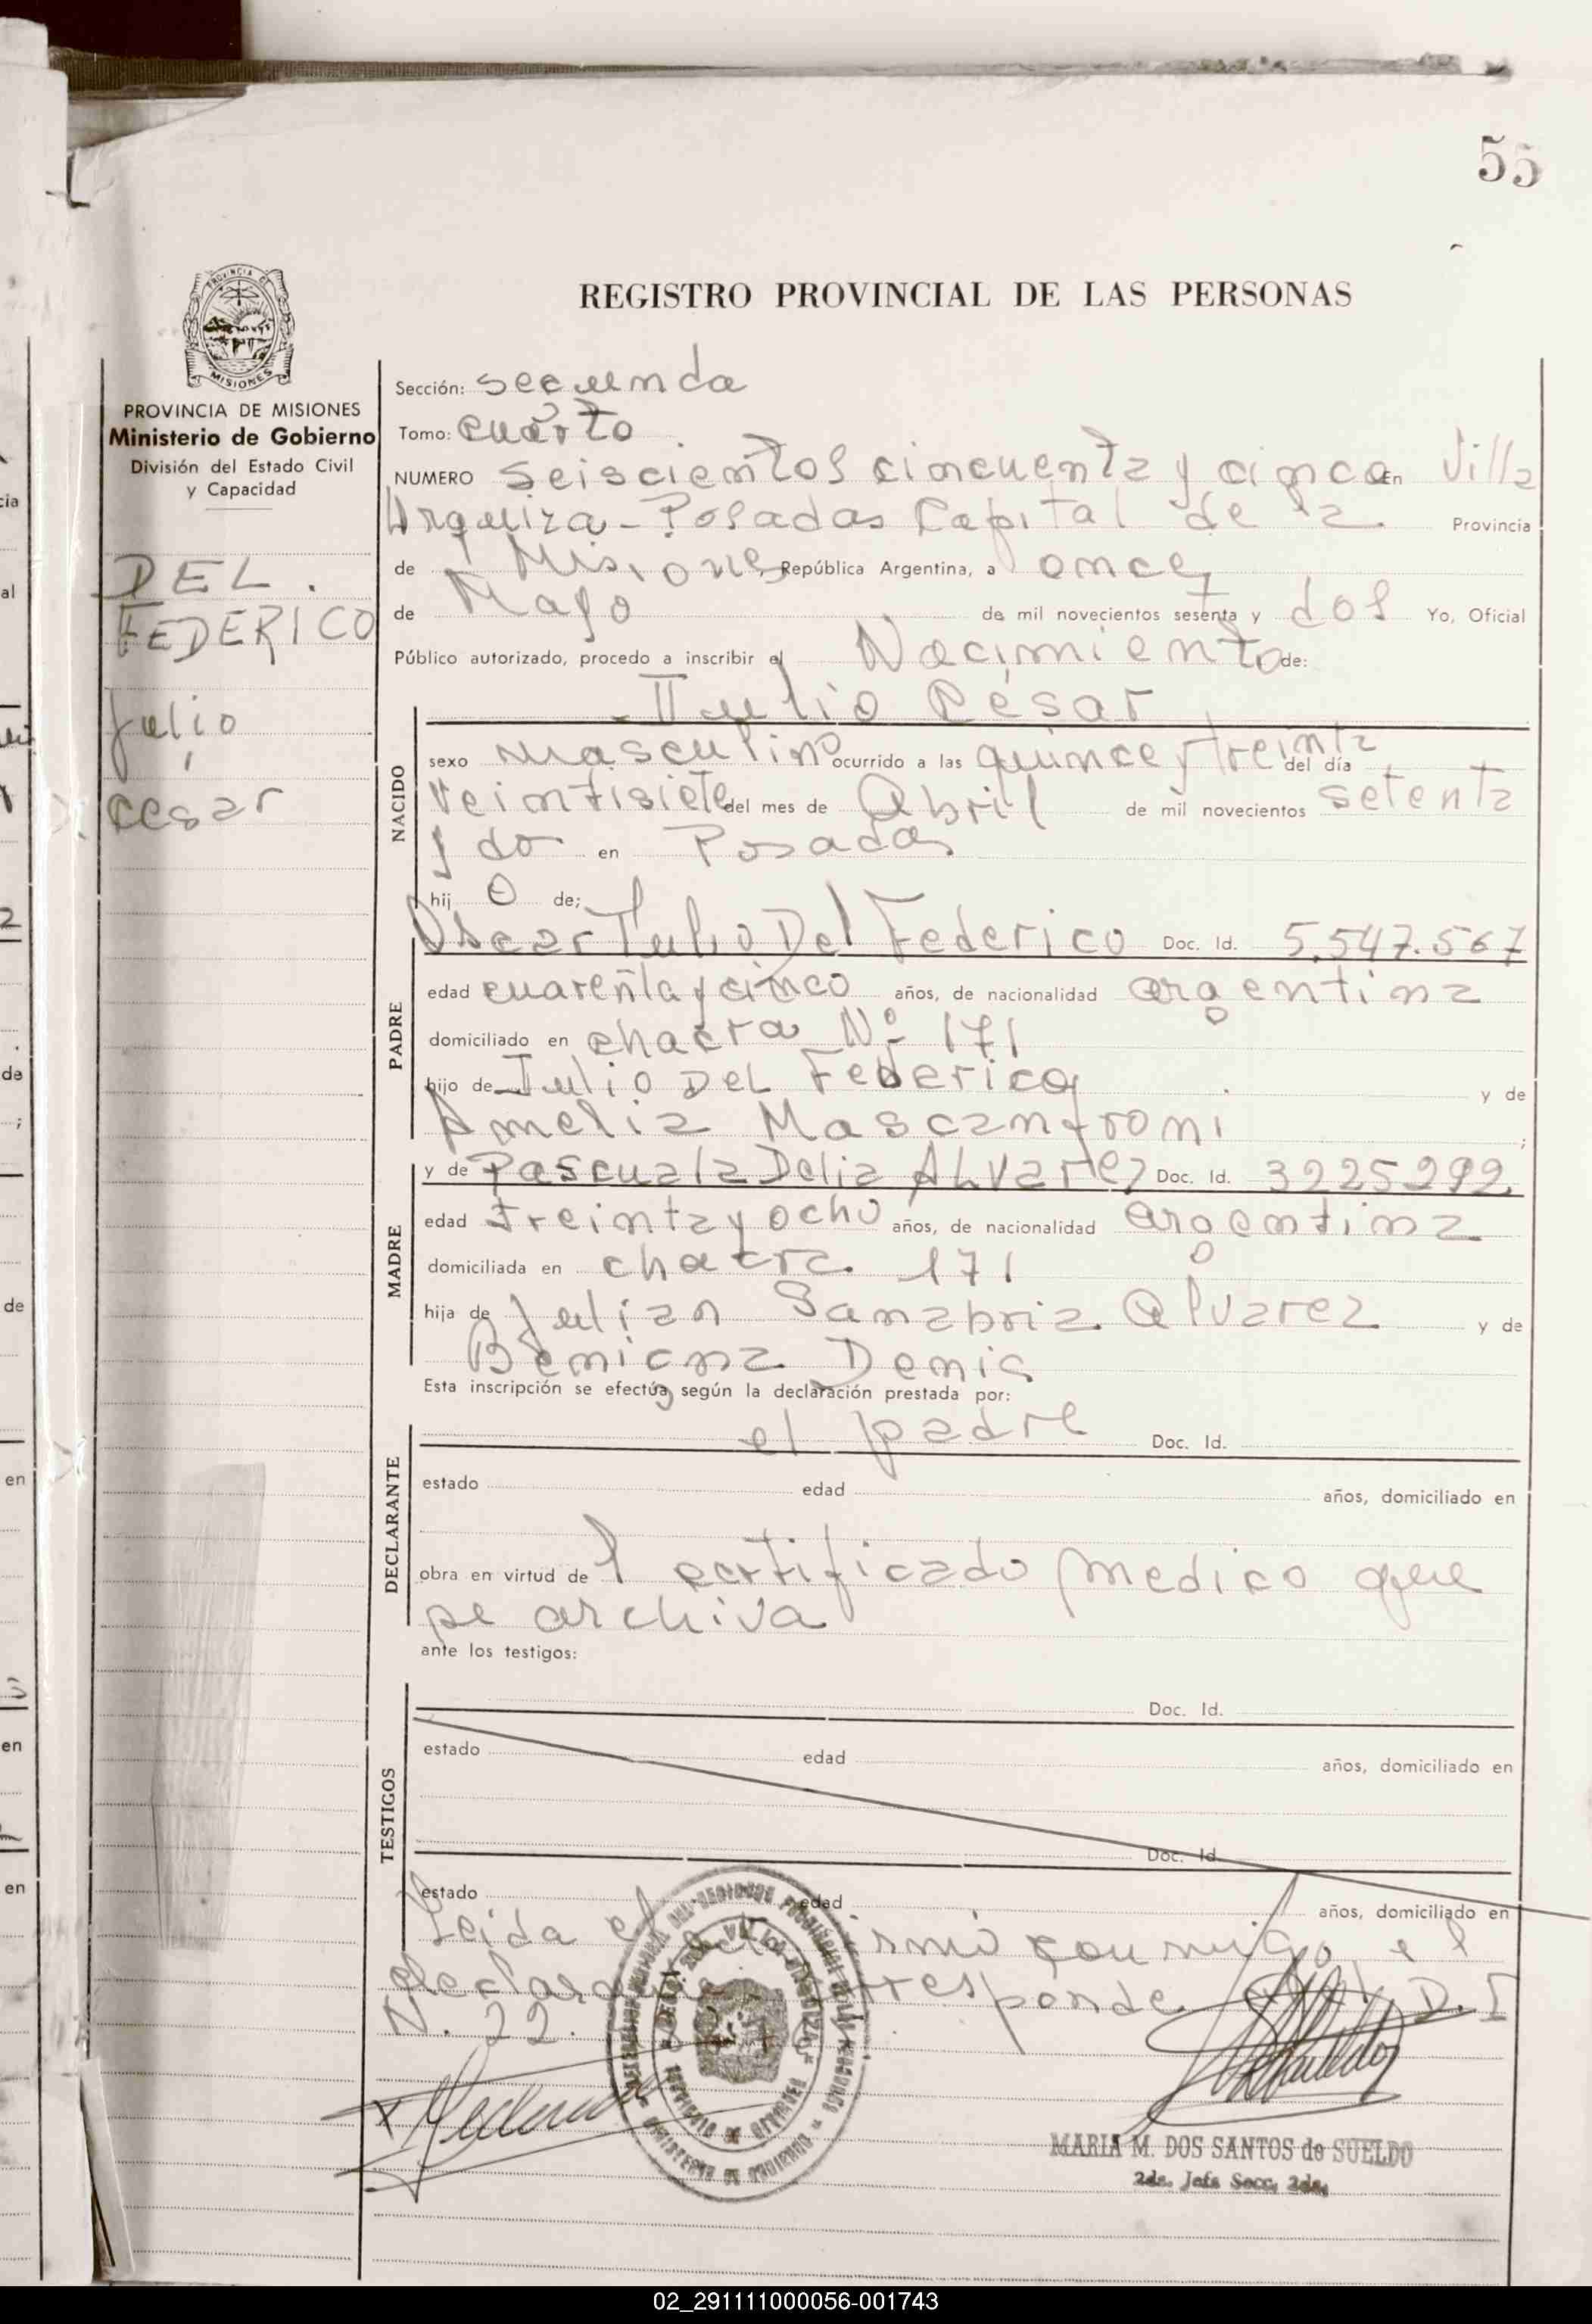 55
REGISTRO PROVINCIAL DE LAS PERSONAS
PROVINCIA DE MISIONES
Ministerio de Gobierno
División del Estado Civil
y Capacidad
DEL
FEDERICO
Julio
César
Sección: segunda
Tomo: cuarto
NUMERO seiscientos cincuenta y cinco En Villa
Urquiza - Posadas Capital de la Provincia
de Misiones, República Argentina, a once
de Mayo de mil novecientos sesenta y dos Yo, Oficial
Público autorizado, procedo a inscribir el Nacimiento de:
Julio César
NACIDO
sexo masculino ocurrido a las quince y treinta del día
veintisiete del mes de Abril de mil novecientos setenta
y dos en Posadas
hijo de;
PADRE
Oscar Julio Del Federico Doc. Id. 5.547.567
edad cuarenta y cinco años, de nacionalidad argentina
domiciliado en chacra Nº 171
hijo de Julio DEL Federico y de
Amelia Mascanfroni;
MADRE
y de Pascuala Delia Alvarez Doc. Id. 3225292
edad treinta y ocho años, de nacionalidad argentina
domiciliada en chacra 171
hija de Julian Sanabria Alvarez y de
Beniana Denis
Esta inscripción se efectúa según la declaración prestada por:
DECLARANTE
el padre Doc. Id.
estado edad años, domiciliado en
obra en virtud del certificado medico que
se archiva
ante los testigos:
TESTIGOS
Doc. Id.
estado edad años, domiciliado en
Doc. Id.
estado edad años, domiciliado en
Leida el firmó conmigo el
declarante corresponde D.I
N. 22.
MARIA M. DOS SANTOS de SUELDO
2da. Jefa Secc. 2da.
02_291111000056-001743